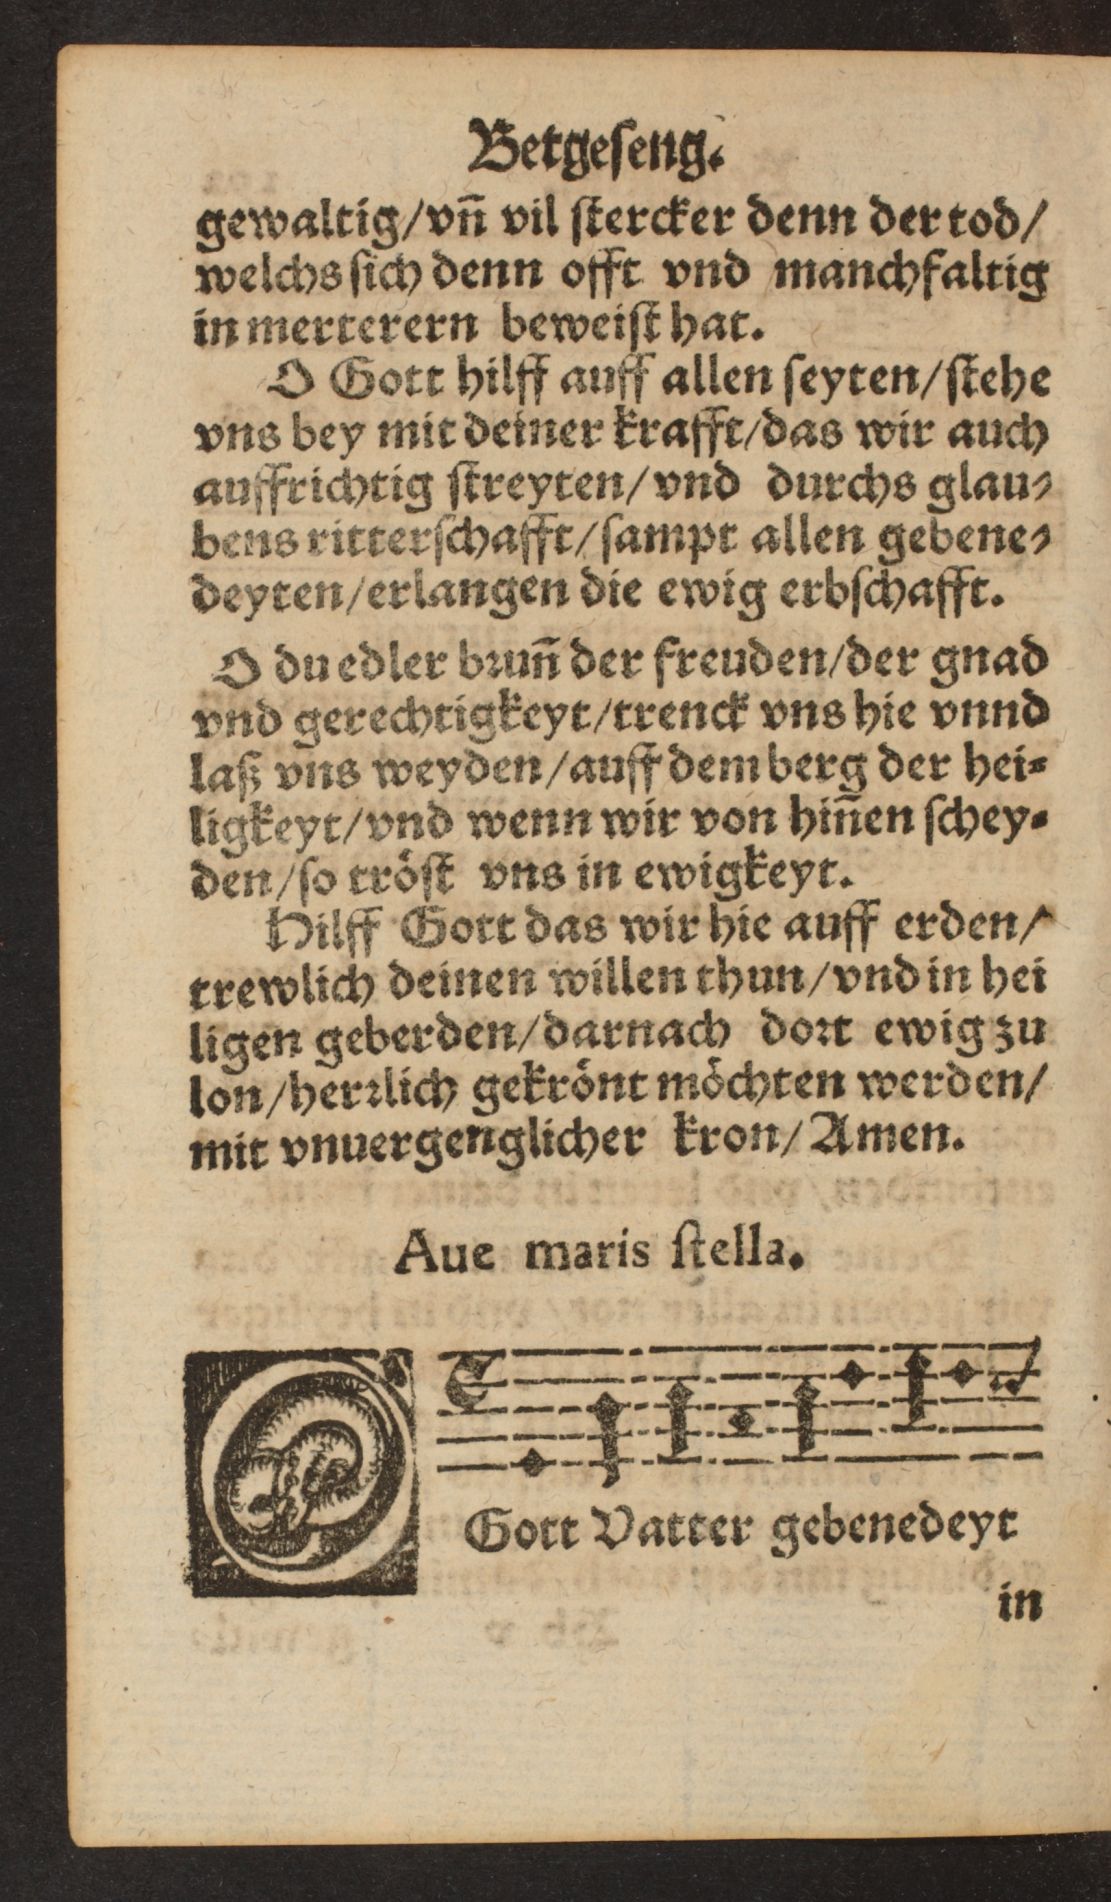 Betgeſeng.
gewaltig/vn̄ vil ſtercker denn der tod/
welchs ſich denn offt vnd manchfaltig
in merterern beweiſt hat.
O Gott hilff auff allen ſeyten/ſtehe
vns bey mit deiner krafft/das wir auch
auffrichtig ſtreyten/vnd durchs glau⸗
bens ritterſchafft/ſampt allen gebene⸗
deyten/erlangen die ewig erbſchafft.
O du edler bꝛun̄ der freuden/der gnad
vnd gerechtigkeyt/trenck vns hie vnnd
laß vns weyden/auff dem berg der hei⸗
ligkeyt/vnd wenn wir von hin̄en ſchey⸗
den/ſo tröſt vns in ewigkeyt.
Hilff Gott das wir hie auff erden/
trewlich deinen willen thun/vnd in hei
ligen geberden/darnach doꝛt ewig zu
lon/herꝛlich gekrönt möchten werden/
mit vnuergenglicher kron/Amen.
Aue maris ſtella.
O
Gott Vatter gebenedeyt
in